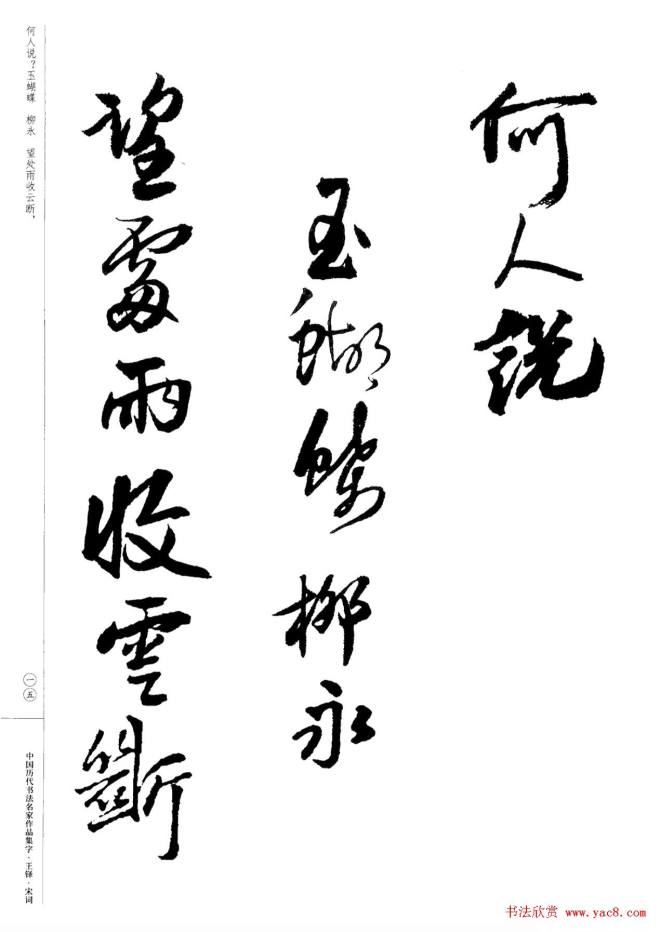 何人説
玉蝴蝶 柳永
望處雨收雲斷
何人说？玉蝴蝶　柳永　望处雨收云断，
一五
中国历代书法名家作品集字·王铎·宋词
书法欣赏 www.yac8.com